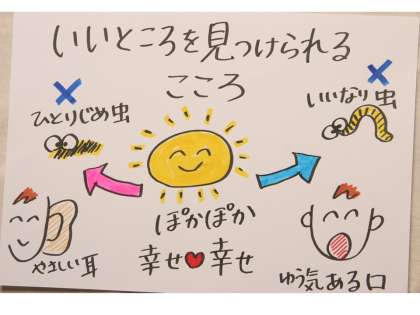 いいところを見つけられる
こころ
ひとりじめ虫
いいなり虫
ぽかぽか
幸せ♥幸せ
やさしい耳
ゆう気ある口